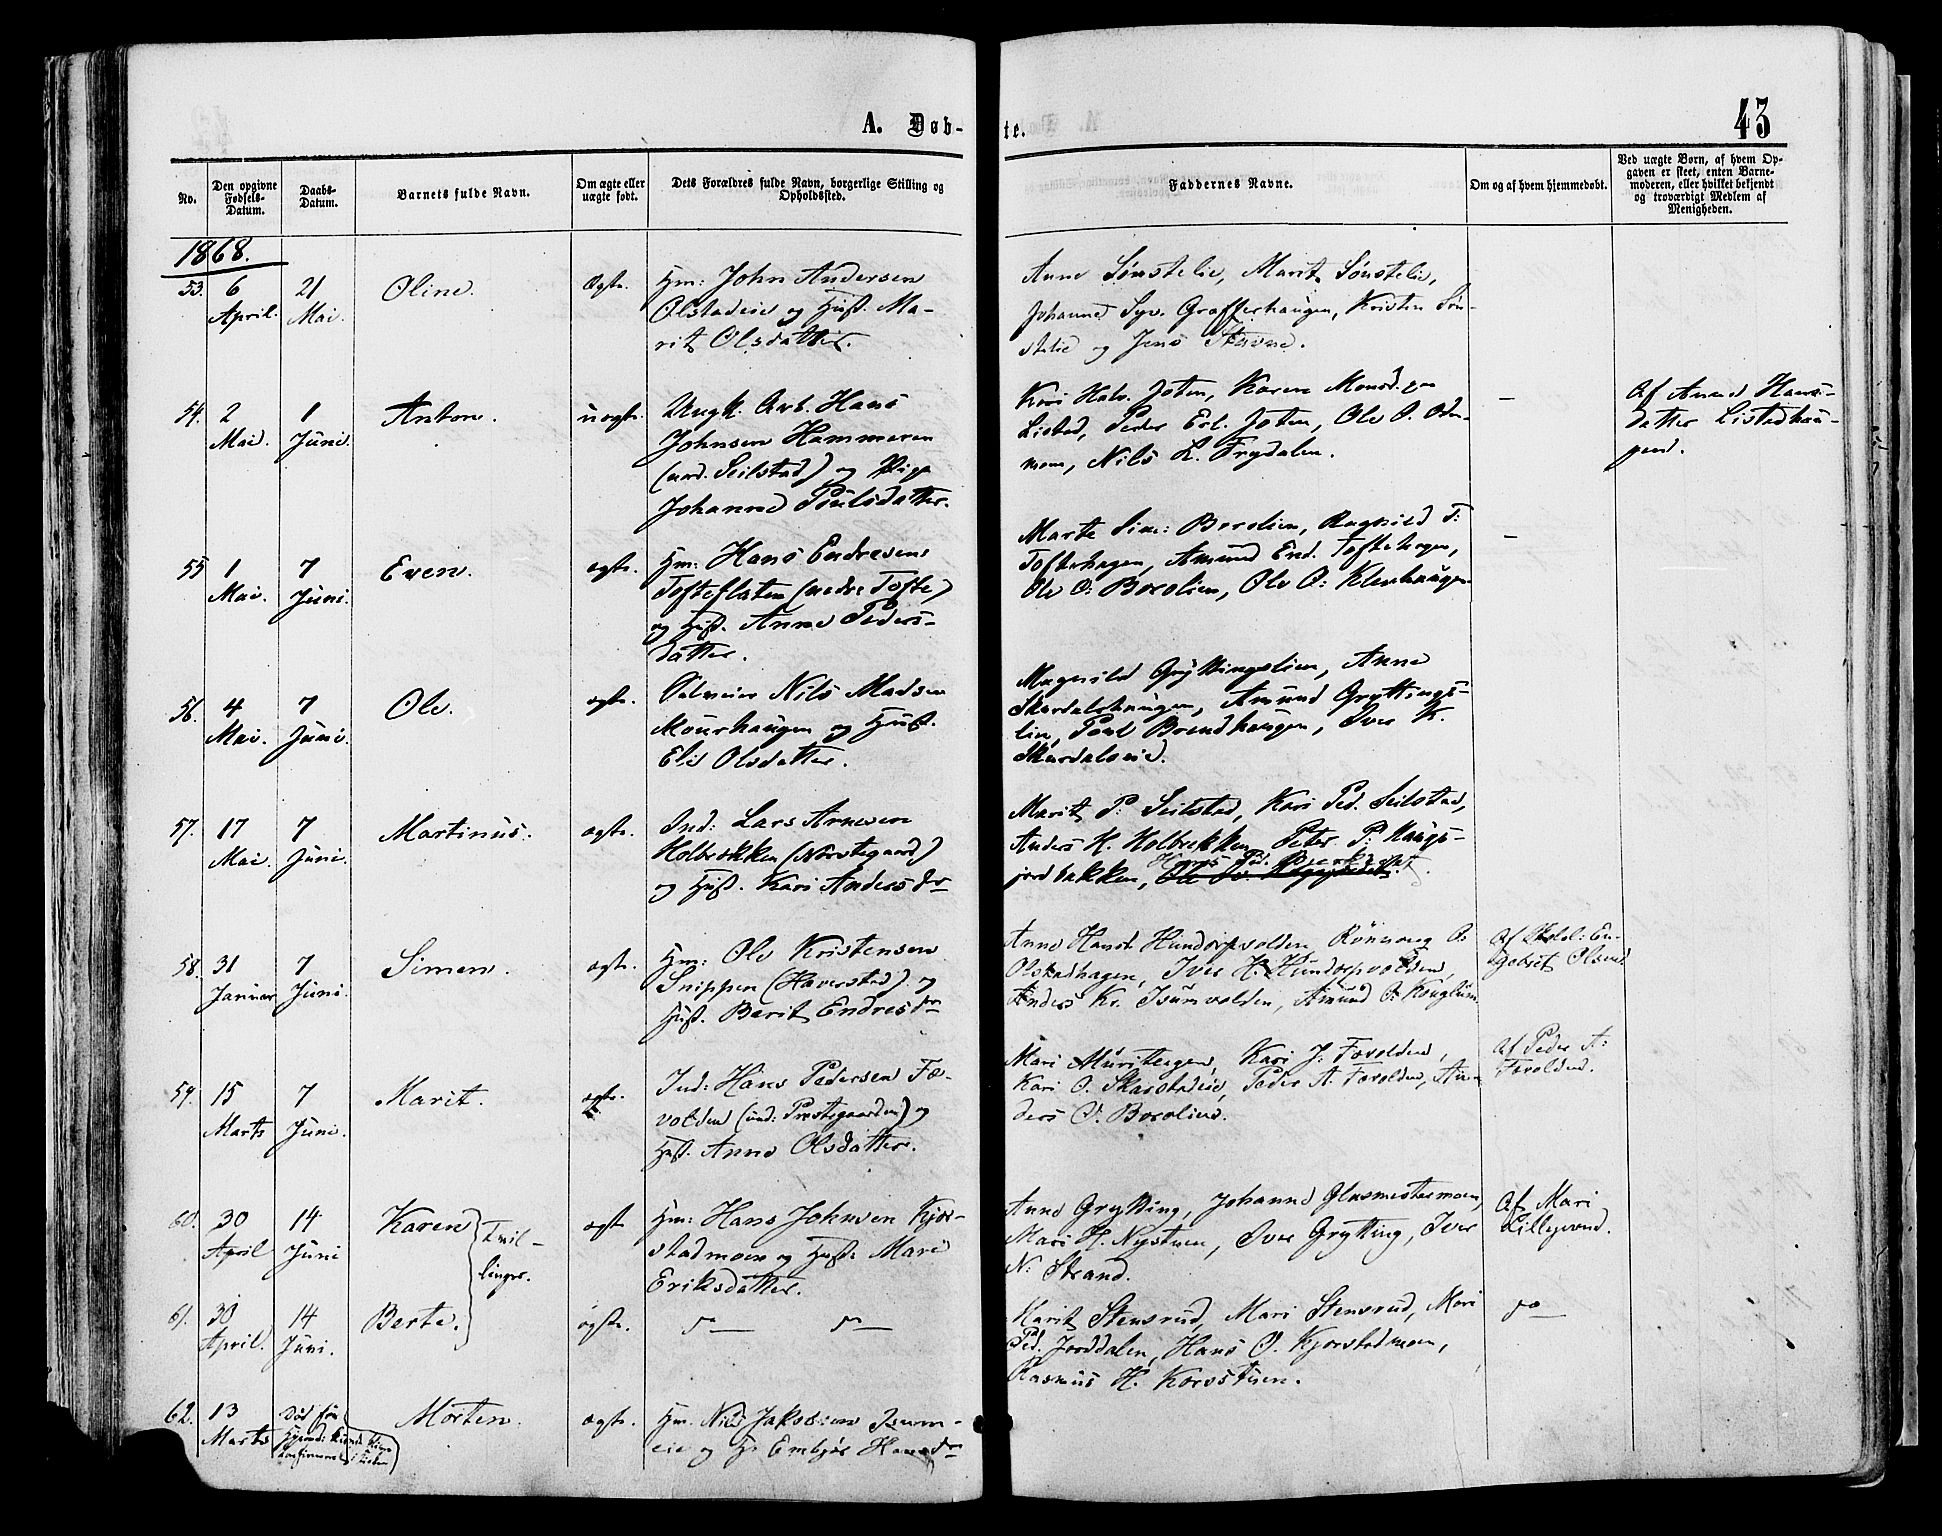 A. Døb-
te.
43
No.
Den opgivne Fødsels-Datum.
Daabs-Datum.
Barnets fulde Navn.
Om ægte eller uægte født.
Dets Forældres fulde Navn, borgerlige Stilling og Opholdssted.
Faddernes Navne.
Om og af hvem hjemmedøbt.
Ved uægte Børn, af hvem Opgaven er skeet, enten Barnemoderen, eller hvilket bekjendt og troværdigt Medlem af Menigheden.
1868.
53. 6 April. 21 Mai. Oline. ægte.
Hm: John Andersen
Olstadeie og Hust. Ma-
rit Olsdatter.
Anne Sønstelie, Marit Sønstelie,
Johanne Syv. Grafferhaugen, Kristen Søn-
stelie og Jens Stavne.
54. 2 Mai. 1 Juni. Anton. uægte.
Ungk. Arb. Hans
Johnsen Hammeren
(und. Seilstad) og Pige
Johanne Poulsdatter.
Kari Halv. Joten, Karen Monsd.
Listad, Peder Erl. Joten, Ole O.
Nils L. Frydalen.
—
Af Anne Hans-
datter Listadhau-
gend.
55 1 Mai. 7 Juni. Even. ægte.
Hm: Hans Endresen
Tofteflaten (nedre Tofte)
og Hust. Anne Peders-
datter.
Marte Sim: Borolien, Ragnild T:
Toftehagen, Amund End. Toftehagen,
Ole O: Borolien, Ole O: Klevhaugen
—
56. 4 Mai. 7 Juni. Ole. ægte.
Nils Madsen
Mourhaugen og Hust.
Eli Olsdatter.
Magnild Gryttingslien, Anne
Skurdalshaugen, Amund Gryttings-
lien, Poul Brendhaugen, Iver K.
Skurdalseie.
57. 17 Mai. 7 Juni. Martinus. ægte.
Ind: Lars Arnesen
Holbrekken (Norstegaard)
og Hust. Kari Andersdr
Marit P: Seilstad, Kari Ped. Seilstad,
Anders H. Holbrekken, Peter P: Haugs-
jordbakken, Hans Ped.
58. 31 Januar 7 Juni. Simen. ægte.
Hm: Ole Kristensen
Snippen (Haverstad) og
Hust. Berit Endresdr
Anne Hansd. Hundorpvolden, Rønnaug O:
Olstadhagen, Iver H. Hundorpvolden,
Anders Kr. Isumvolden, Amund O: Kouglum
Af Skolel: En-
gebret Olsen
59. 15 Marts 7 Juni. Marit. ægte.
Ind: Hans Pedersen Fæ-
volden (und: Prestegaarden) og
Hust. Anne Olsdatter.
Mari Muribergen, Kari J. Fævolden,
Kari O. Skarstadeie, Peder A. Fævolden, An-
ders O: Borolien.
Af Peder A:
Fævolden.
60. 30 April 14 Juni Karen ægte
Tvil-
linger.
Hm: Hans Johnsen Kjør-
stadmoen og Hust. Mari
Eriksdatter.
Anne Grytting, Johanne Glasmestermoen,
Mari H. Nystuen, Iver Grytting, Iver
N: Strand.
Af Mari
Lillegrend.
61. 30 April. 14 Juni. Berte. ægte.
do— do—
Marit Stensrud, Mari Stensrud, Mari
Ped. Jorddalen, Hans O. Kjørstadmoen,
Rasmus H. Korvstuen.
do—
62. 13 Marts Død før Morten. ægte.
Hm. Nils Jakobsen Isum-
eie og H. Embjør Hansdr